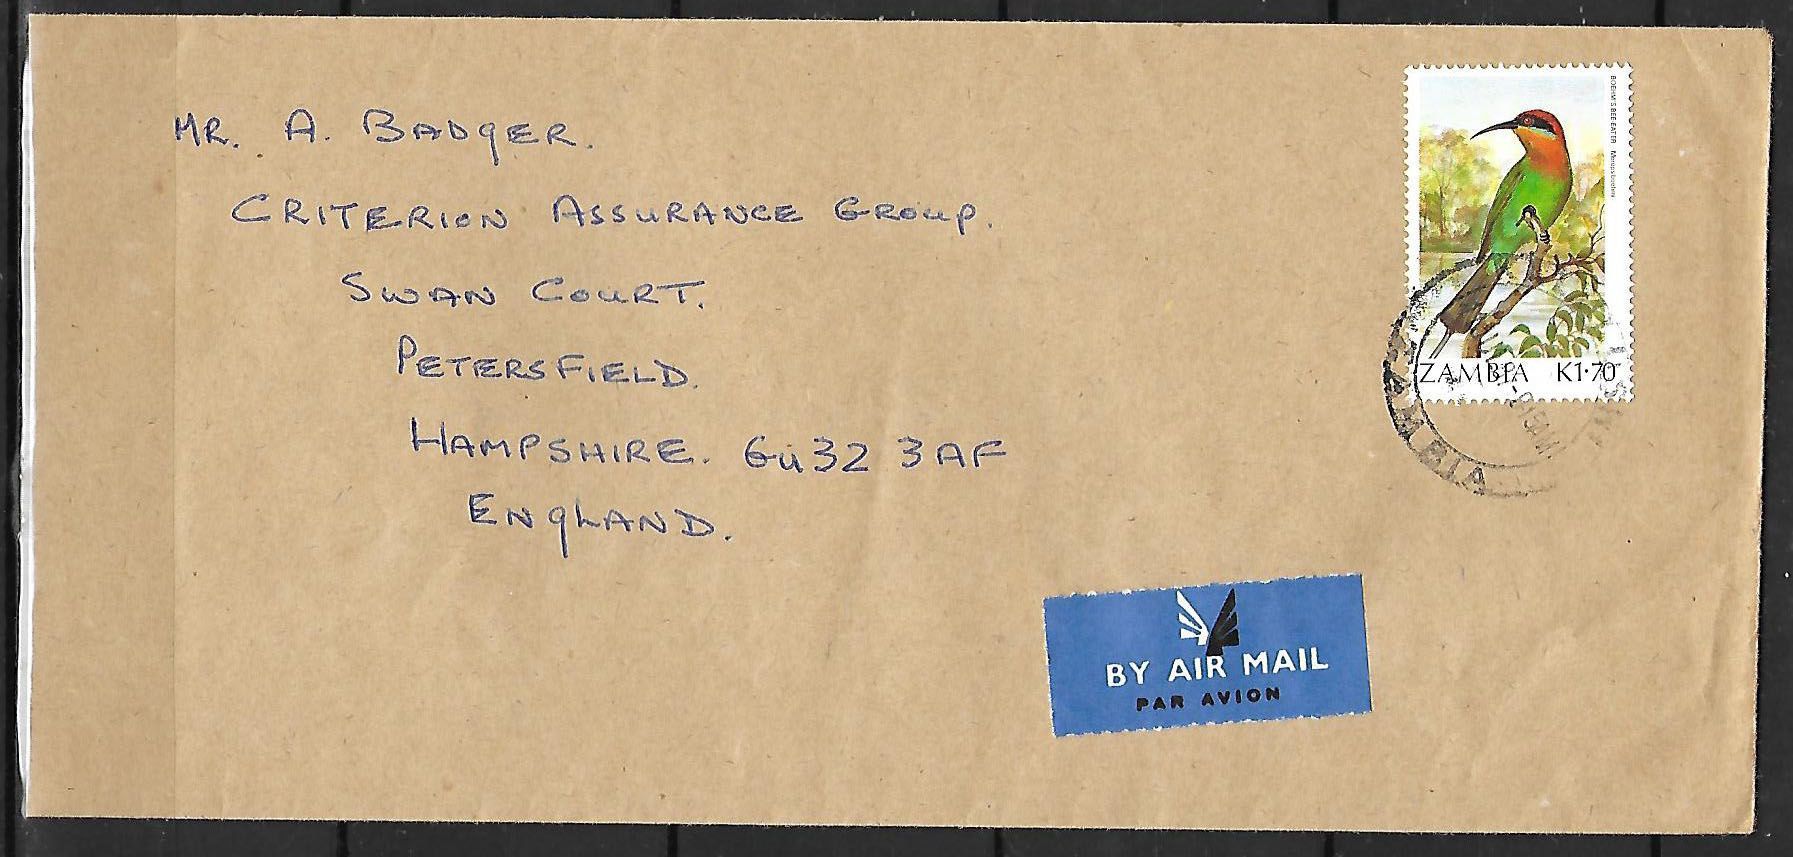 MR. A. BADGER.
CRITERION ASSURANCE GROUP.
SWAN COURT.
PETERSFIELD.
HAMPSHIRE. GU32 3AF
ENGLAND.
BOEHM'S BEE-EATER Merops boehmi
ZAMBIA K1·70
ZAMBIA
BY AIR MAIL
PAR AVION